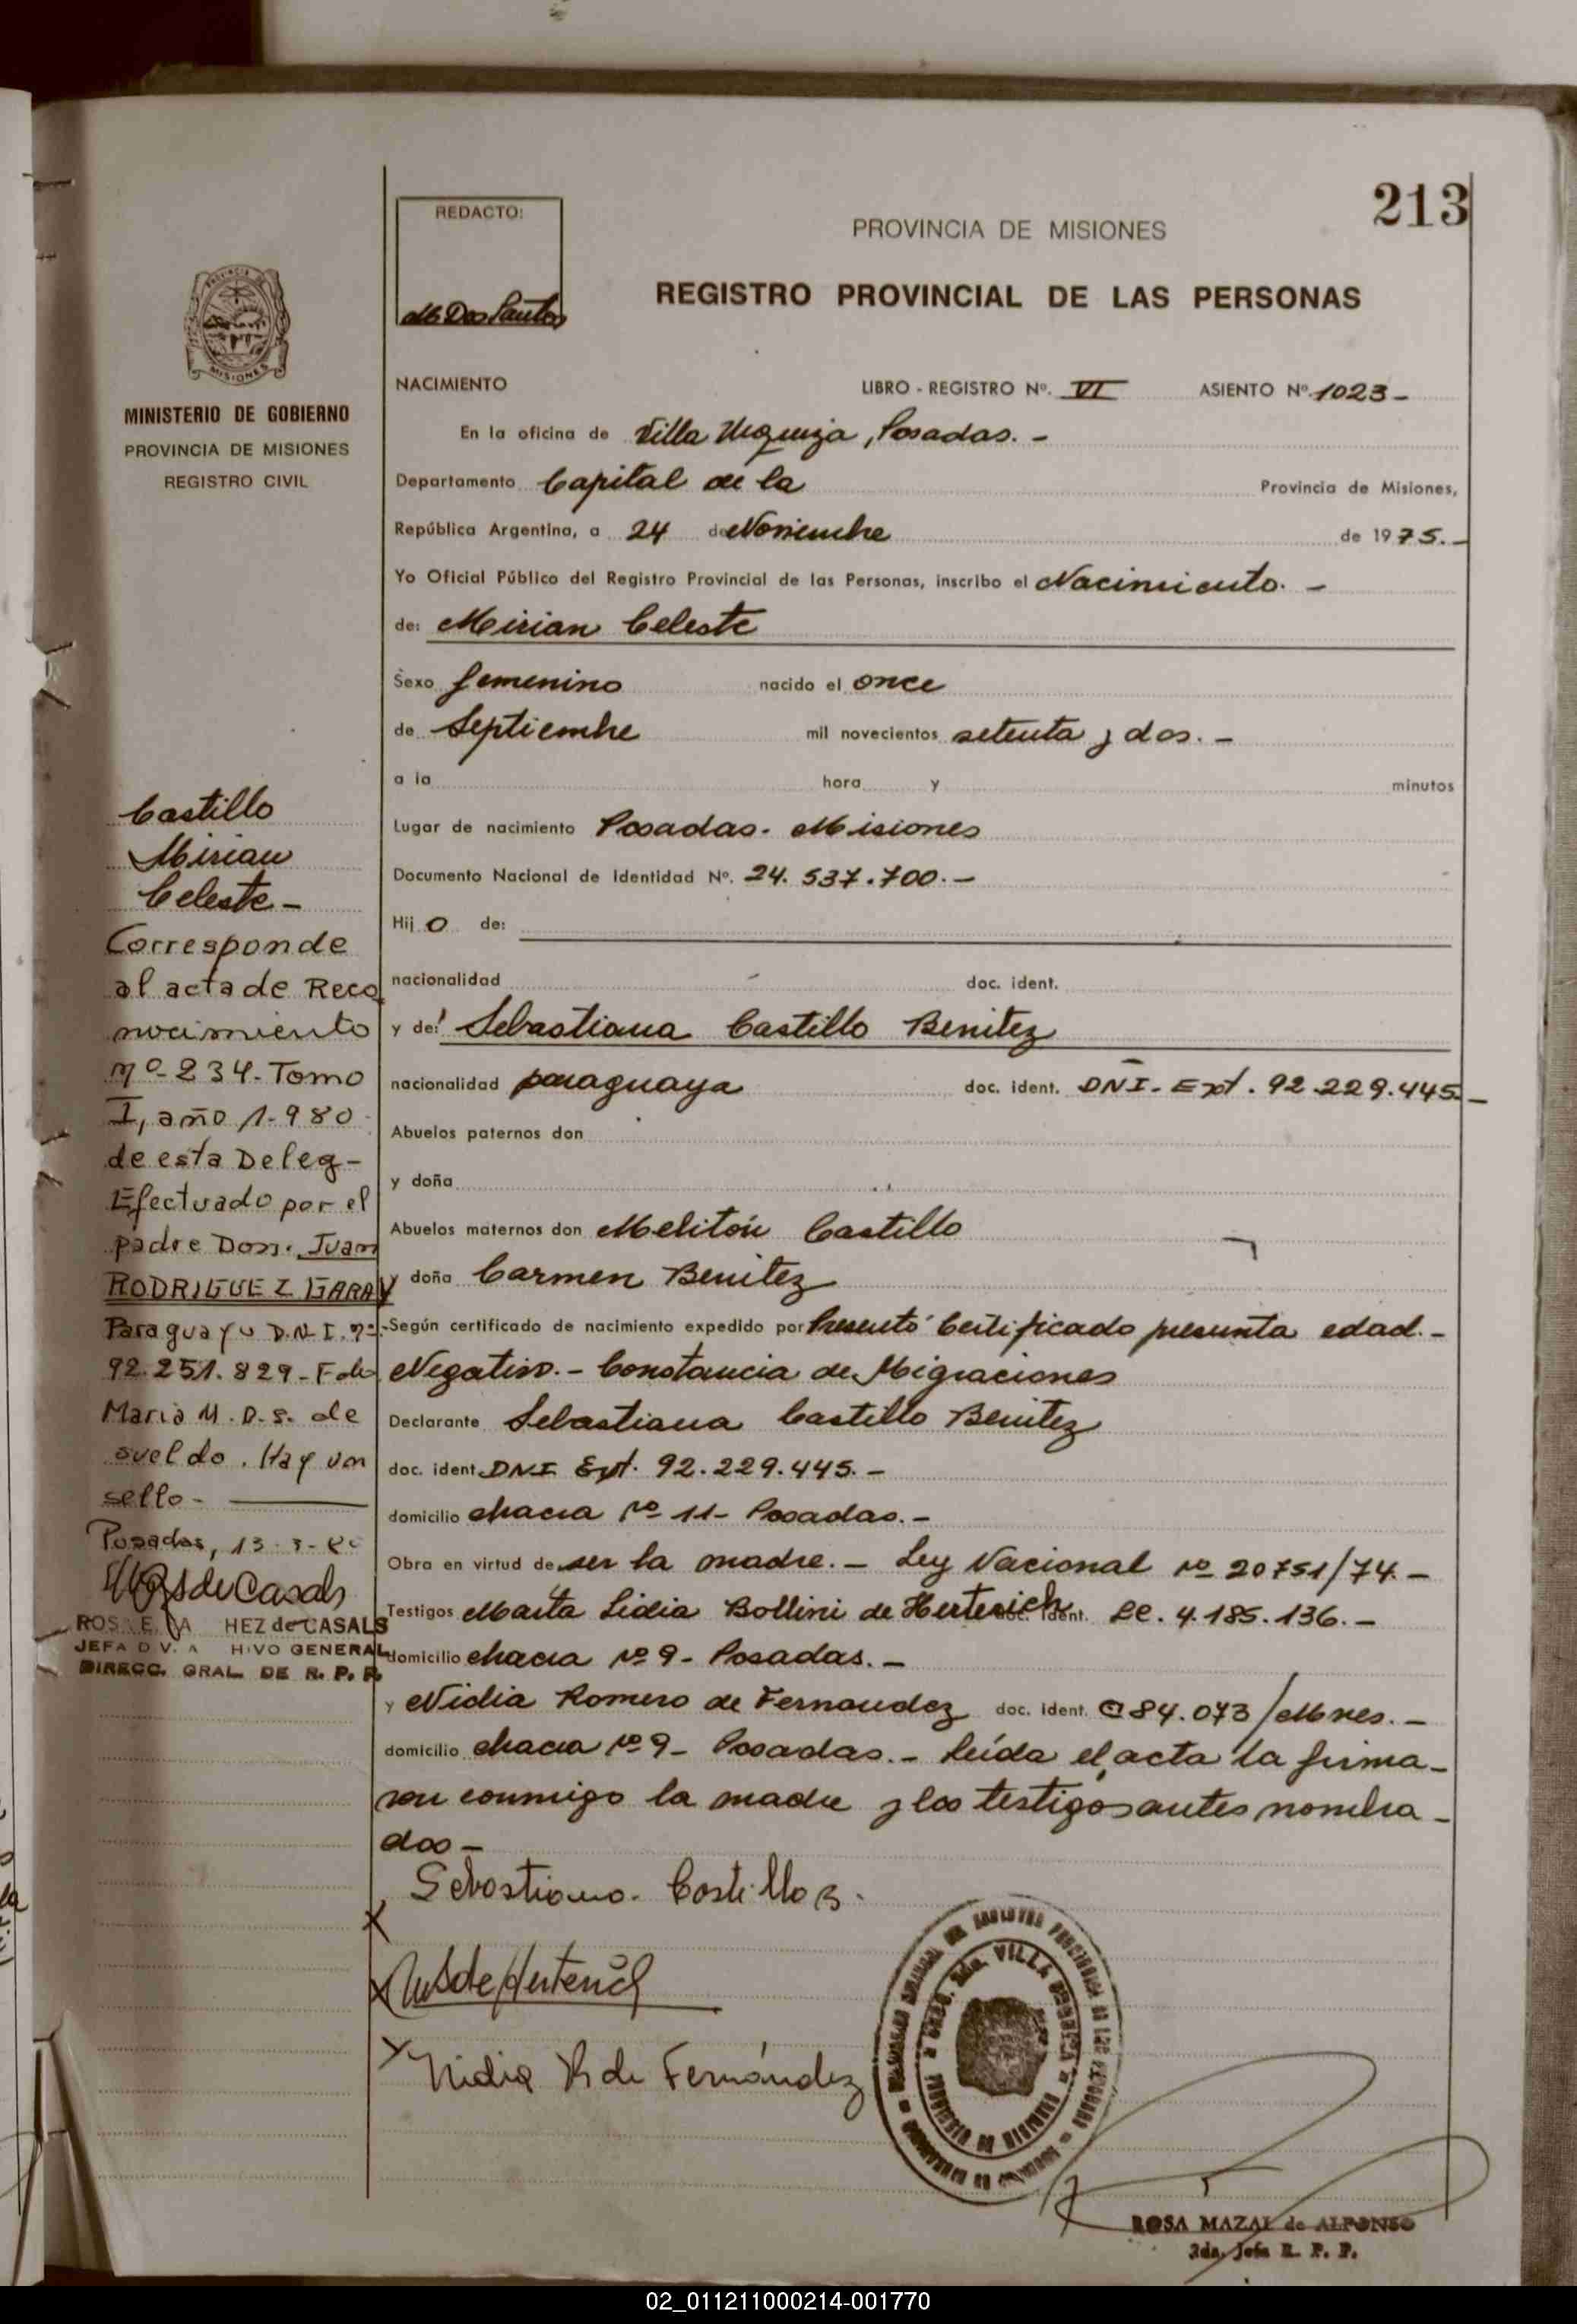 213
REDACTO:
M Dos Santos
PROVINCIA DE MISIONES
REGISTRO PROVINCIAL DE LAS PERSONAS
MISIONES
MINISTERIO DE GOBIERNO
PROVINCIA DE MISIONES
REGISTRO CIVIL
NACIMIENTO LIBRO - REGISTRO Nº. VI ASIENTO Nº. 1023 -
En la oficina de Villa Urquiza, Posadas. -
Departamento Capital de la Provincia de Misiones,
República Argentina, a 24 de Noviembre de 1975. -
Yo Oficial Público del Registro Provincial de las Personas, inscribo el Nacimiento. -
de: Mirian Celeste
Sexo femenino nacido el once
de Septiembre mil novecientos setenta y dos. -
a la hora y minutos
Lugar de nacimiento Posadas - Misiones
Documento Nacional de Identidad Nº. 24.537.700. -
Hij o de:
nacionalidad doc. ident.
y de: Sebastiana Castillo Benitez
nacionalidad paraguaya doc. ident. DNI - Ext. 92.229.445. -
Abuelos paternos don
y doña
Abuelos maternos don Melitón Castillo
y doña Carmen Benitez
Según certificado de nacimiento expedido por Presentó Certificado presunta edad. -
Negativo. - Constancia de Migraciones
Declarante Sebastiana Castillo Benitez
doc. ident. DNI Ext. 92.229.445. -
domicilio chacra Nº 11 - Posadas. -
Obra en virtud de ser la madre. - Ley Nacional Nº 20751/74. -
Testigos Marta Lidia Bollini de Herterich doc. ident. LC. 4.185.136. -
domicilio chacra Nº 9 - Posadas. -
y Nidia Romero de Fernandez doc. ident. CI 84.073/Mnes. -
domicilio chacra Nº 9 - Posadas. - Leída el acta la firma-
ron conmigo la madre y los testigos antes nombra-
dos -
Sebastiana Castillo B.
Nidia R de Fernández
Castillo
Mirian
Celeste -
Corresponde
al acta de Reco
nocimiento
nº 234 - Tomo
I, año 1.980
de esta Deleg -
Efectuado por el
padre Don: Juan
RODRIGUEZ GARAY
Paraguayo D.N.I. nº
92.251.829 - Fdo
Maria M. D. S. de
sueldo. Hay un
sello -
Posadas, 13
de CASALS
JEFA DIV. GENERAL
DIRECC. GRAL DE R. P. P.
ROSA MAZAL de ALFONSO
2da. Jefa R. P. P.
02_011211000214-001770